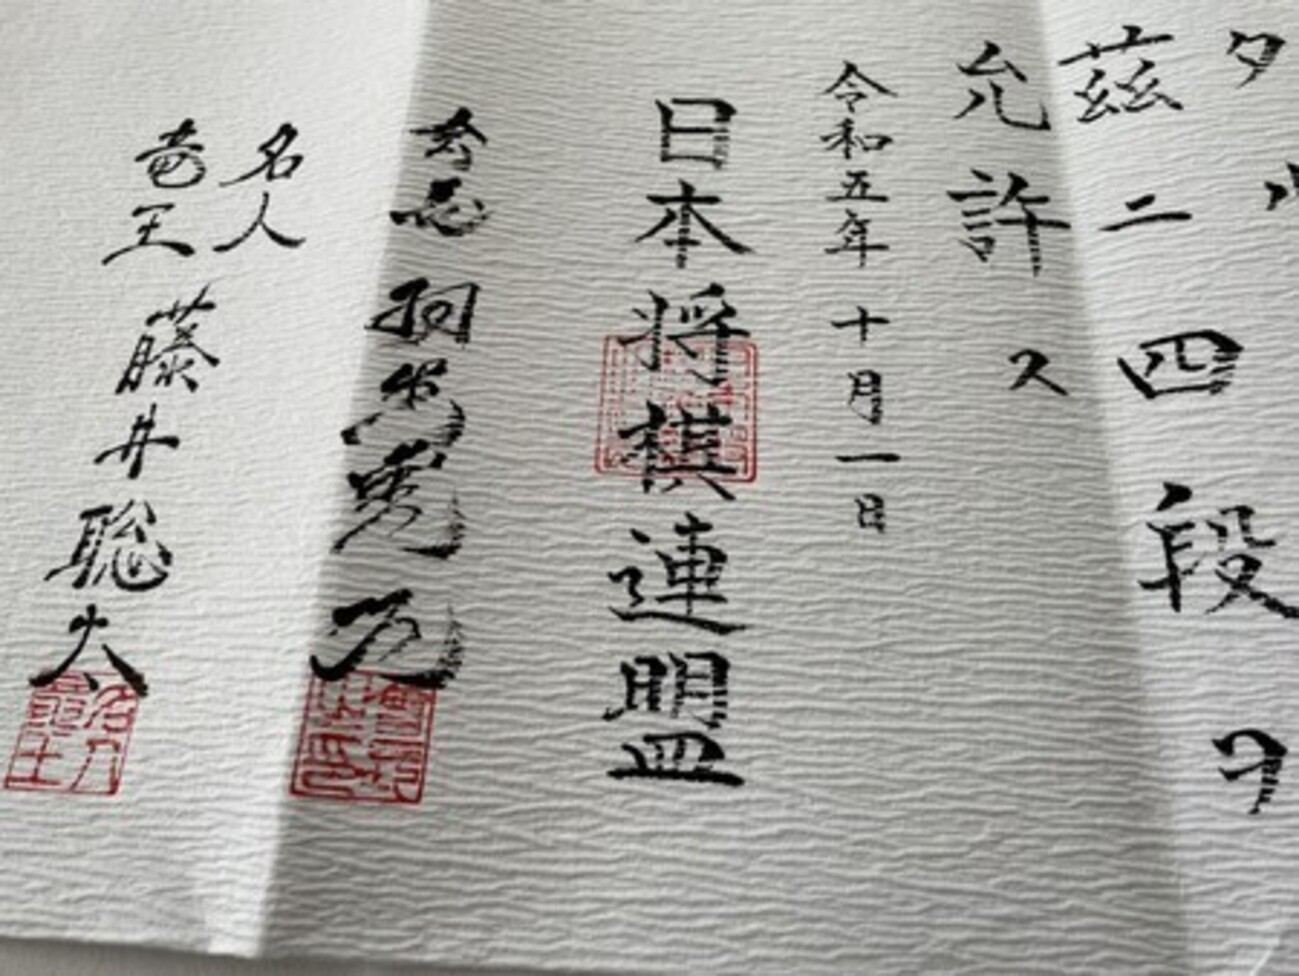 タ
茲ニ四段ヲ
允許ス
令和五年十月一日
日本将棋連盟
会長 羽生善治
名人
竜王 藤井聡太